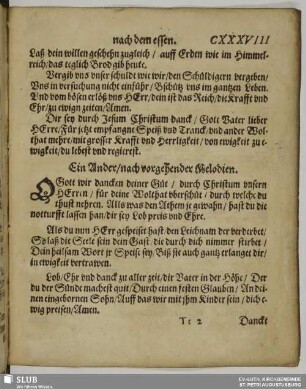 nach dem essen. CXXXVIII
Laß dein willen geschehn zugleich / auff Erden wie im Himmel-
reich / das teglich Brod gib heute.
Vergib vns vnser schuldt wie wir / den Schüldigern vergeben /
Vns in versuchung nicht einführ / Vschütz vns im gantzen Leben.
Vnd vom bösen erlöß vns HErr / dein ist das Reich / die Krafft vnd
Ehr / zu ewign zeiten / Amen.
Dir sey durch Jesum Christum danck / Gott Vater lieber
HErre / Für jetzt empfangne Speiß vnd Tranck / vnd ander Wol-
that mehre / mit grosser Krafft vnd Herrligkeit / von ewigkeit zu e-
wigkeit / du lebest vnd regierest.
Ein Ander / nach vorgehender Melodien.
O Gott wir dancken deiner Güt / durch Christum vnsern
HErren / für deine Wolthat vberschüt / durch welche du
thust nehren. Alls was den Athem je gewahn / hast du die
notturfft lassen han / dir sey Lob preis vnd Ehre.
Als du nun HErr gespeist hast den Leichnam der verderbet /
So laß die Seele sein dein Gast / die durch dich nimmer stirbet /
Dein heilsam Wort jr Speise sey / Biß sie auch gantz erlanget die /
in ewigkeit vertrawen.
Lob / Ehr vnd danck zu aller zeit / dir Vater in der Höhe / Der
du der Sünde machest quit / Durch einen festen Glauben / An dei-
nen eingebornen Sohn / Auff das wir mit jhm Kinder sein / dich e-
wig preisen / Amen.
Tt 2 Danckt
SLUB
Wir führen Wissen.
EV.-LUTH. KIRCHGEMEINDE
ST. PETRI AUGUSTUSBURG